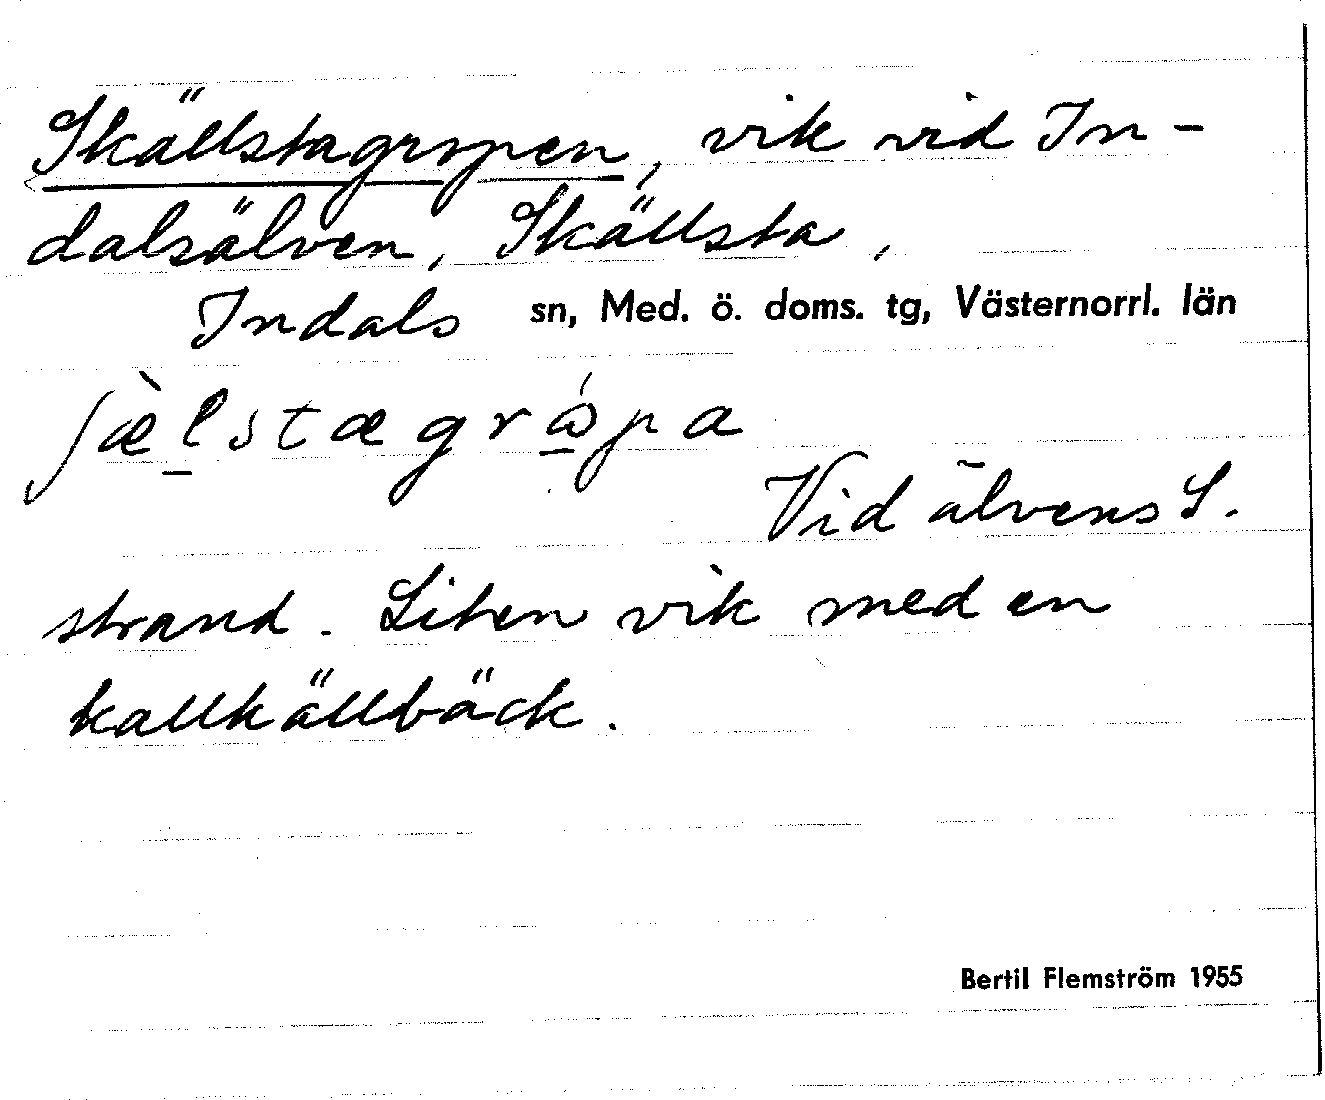 Skällstagropen, vik vid In-
dalsälven, Skällsta,
Indals sn, Med. ö. doms. tg, Västernorrl. län
ʃæ̀l̲stægrώ̲pa
Vid älvens S.
strand. Liten vik med en
kallkällbäck.
Bertil Flemström 1955